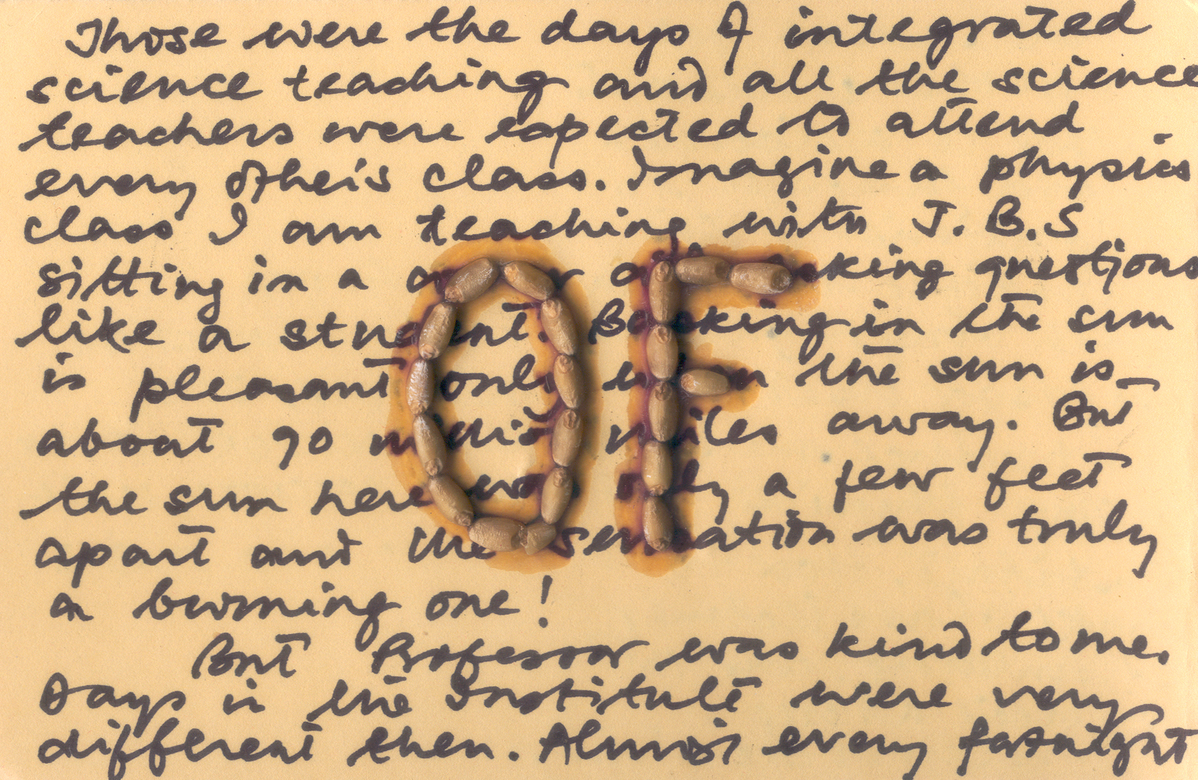 Those were the days of integrated
science teaching and all the science
teachers were expected to attend
every other's class. Imagine a physics
class I am teaching with J.B.S
sitting in a asking questions
like a student. Basking in the sun
is pleasant only when the sun is
about 90 million miles away. But
the sun here was only a few feet
apart and the sensation was truly
a burning one!
But Professor was kind to me.
Days in the Institute were very
different then. Almost every fortnight
OF